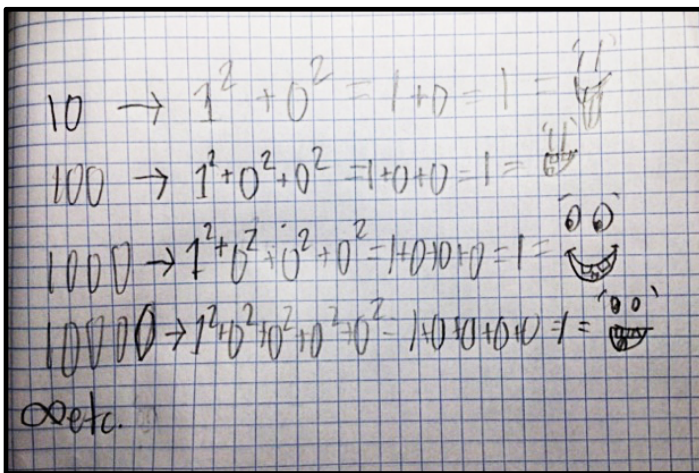 10 → 1² + 0² = 1+0 = 1 =
100 → 1²+0²+0² =1+0+0=1=
1000 → 1²+0²+0²+0²=1+0+0+0=1=
10000→1²+0²+0²+0²+0²= 1+0+0+0+0 =1=
∞etc.